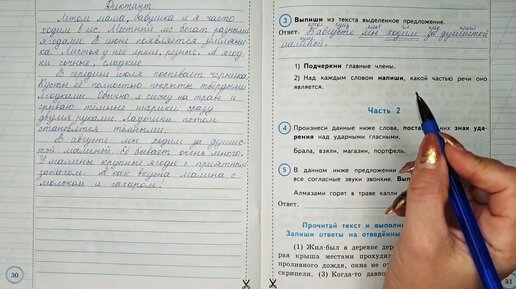 Диктант.
Летом мама, бабушка и я часто
ходим в лес. Местный лес богат разными
ягодами. В июне появляется земляни-
ка. Листья у неё яркие, резные. А ягод-
ки сочные, сладкие.
В середине июля поспевает черника.
Кусты её полностью покрыты твёрдыми
ягодками. Обычно я сижу на траве и
срываю тёмные шарики сразу
двумя руками. Ладошки потом
становятся тёмными.
В августе мы ходим за душис-
той малиной. Её бывает очень много.
У малины крупные ягоды с приятным
запахом. А как вкусна малина с
молоком и сахаром.
30
3 Выпиши из текста выделенное предложение.
Ответ. В августе мы ходим за душистой
малиной.
1) Подчеркни главные члены.
2) Над каждым словом напиши, какой частью речи оно
является.
Часть 2
4 Произнеси данные ниже слова, поста них знак уда-
рения над ударными гласными.
Брала, взяли, магазин, портфель.
5 В данном ниже предложении
все согласные звуки звонкие. Вып
Алмазами горят в траве капли
Ответ.
Прочитай текст и выполни
Запиши ответы на отведённы
(1) Жил-был в деревне дер
рая крыша местами прохуди
проливного дождя, окна не от
скрипели. (3) Когда-то давно
31